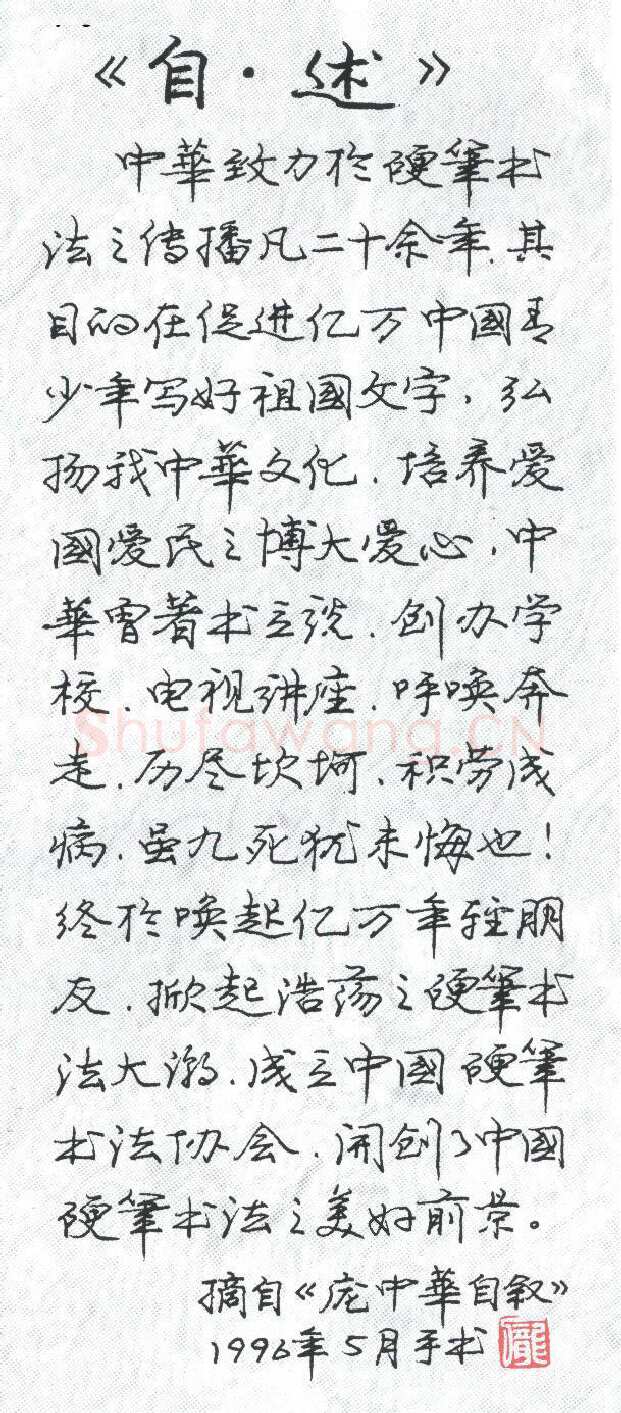 《自·述》
中華致力於硬筆书
法之传播凡二十余年.其
目的在促进亿万中國青
少年写好祖國文字,弘
扬我中華文化.培养爱
國爱民之博大爱心,中
華曾着书立说.创办学
校.电视讲座.呼唤奔
走.历尽坎坷.积劳成
病.虽九死犹未悔也!
终於唤起亿万年轻朋
友.掀起浩荡之硬筆书
法大潮.成立中國硬筆
书法协会.开创了中國
硬筆书法之美好前景。
摘自《庞中華自叙》
1996年5月手书
龐
Shufawang.CN